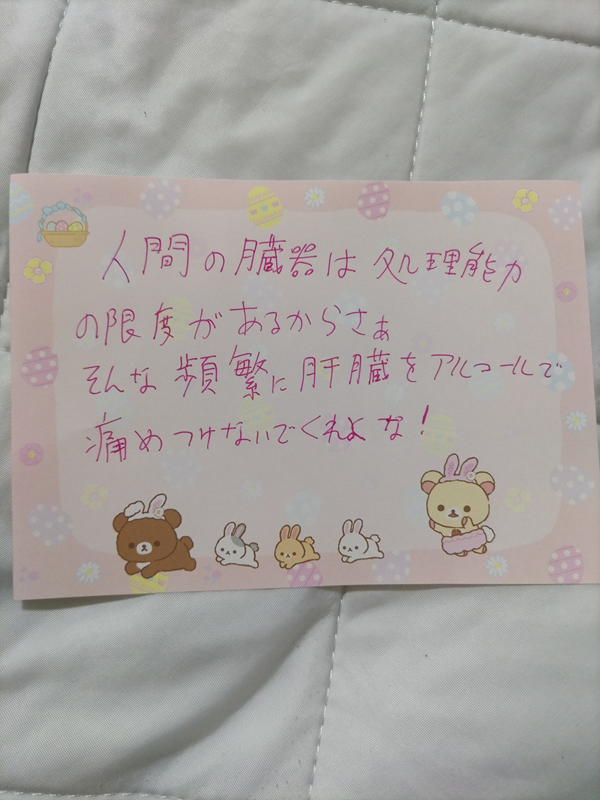 人間の臓器は処理能力
の限度があるからさぁ
そんな頻繁に肝臓をアルコールで
痛めつけないでくれよな!